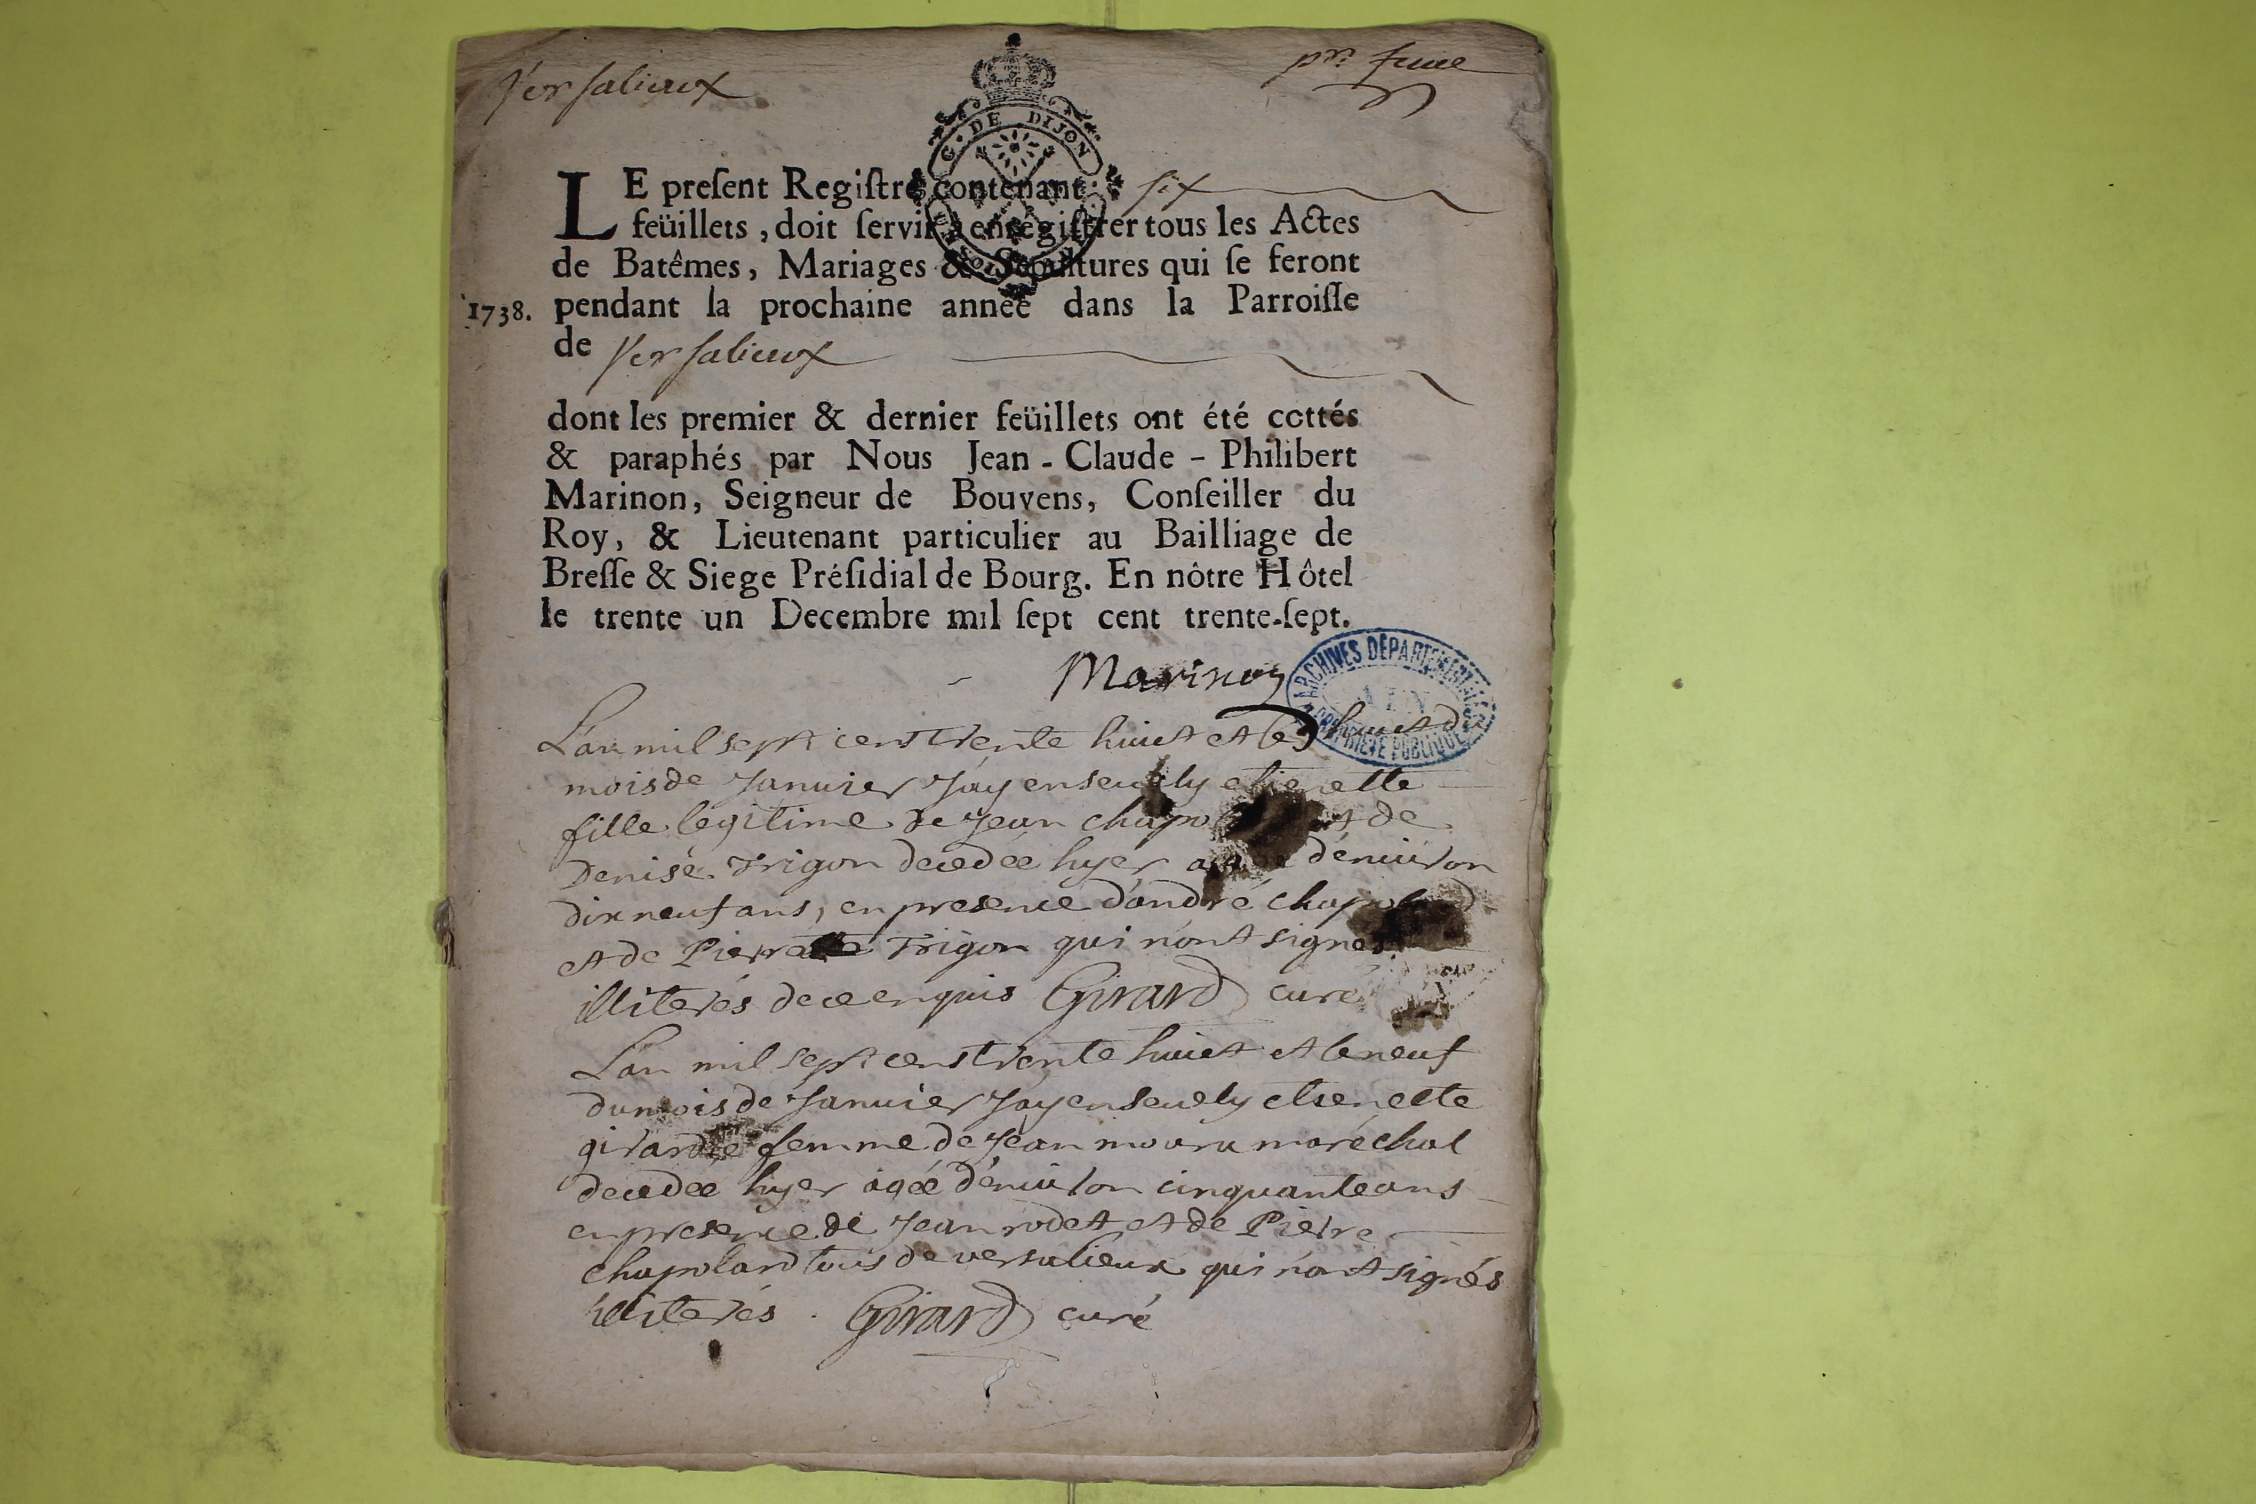 Versalieux
G. DE DIJON
LE preſent Regiſtre contenant ſix
feüillets, doit ſervir à enregiſtrer tous les Actes
de Batêmes, Mariages & Sepultures qui ſe feront
1738. pendant la prochaine année dans la Parroiſſe
de Versalieux
dont les premier & dernier feüillets ont été cottés
& paraphés par Nous Jean - Claude - Philibert
Marinon, Seigneur de Bouvens, Conſeiller du
Roy, & Lieutenant particulier au Bailliage de
Breſſe & Siege Préſidial de Bourg. En nôtre Hôtel
le trente un Decembre mil ſept cent trente-ſept.
Marinon
ARCHIVES DÉPARTEMENTALES
PROPRIÉTÉ PUBLIQUE
L'an mil sept cens trente huict et le huict du
mois de Janvier J'ay ensevely etienette
fille legitime de Jean de
Denise Trigon decedée hyer d'environ
dix neuf ans, en presence d'andré
et de Trigon qui n'ont signés
illiterés de ce enquis Girard curé
L'an mil sept cens trente huict et le neuf
du mois de Janvier J'ay ensevely etienette
femme de Jean maréchal
decedée hyer agée d'environ cinquante ans
en presence de Jean rodet et de Pierre
chapolard tous de versalieux qui n'ont signés
illiterés . Girard curé